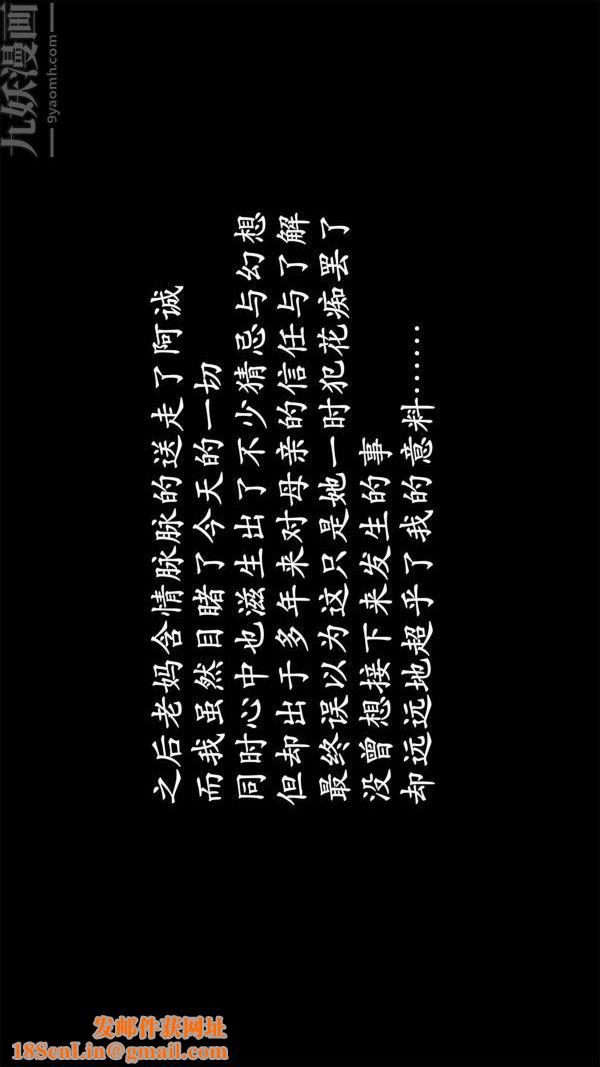 九妖漫画
9yaomh.com
之后老妈含情脉脉的送走了阿诚
而我虽然目睹了今天的一切
同时心中也滋生出了不少猜忌与幻想
但却出于多年来对母亲的信任与了解
最终误以为这只是她一时犯花痴罢了
没曾想接下来发生的事
却远远地超乎了我的意料……
发邮件获网址
18ScnLin@gmail.com